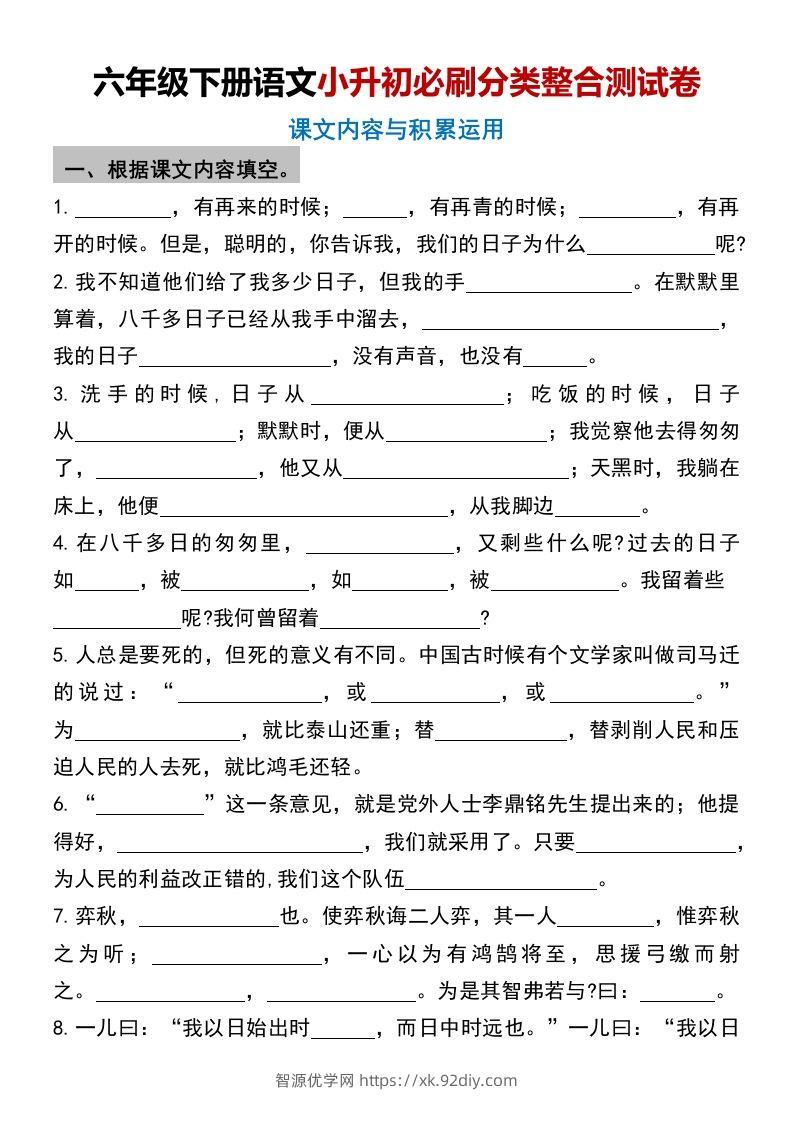 六年级下册语文小升初必刷分类整合测试卷
课文内容与积累运用
一、根据课文内容填空。
1. _________，有再来的时候；______，有再青的时候；_________，有再
开的时候。但是，聪明的，你告诉我，我们的日子为什么____________呢?
2. 我不知道他们给了我多少日子，但我的手________________。在默默里
算着，八千多日子已经从我手中溜去，____________________________，
我的日子__________________，没有声音，也没有______。
3. 洗手的时候,日子从__________________；吃饭的时候，日子
从_______________；默默时，便从_______________；我觉察他去得匆匆
了，_______________，他又从_____________________；天黑时，我躺在
床上，他便___________________________，从我脚边________。
4. 在八千多日的匆匆里，______________，又剩些什么呢?过去的日子
如______，被____________，如_________，被____________。我留着些
____________呢?我何曾留着_______________?
5. 人总是要死的，但死的意义有不同。中国古时候有个文学家叫做司马迁
的说过：“______________，或____________，或______________。”
为________________，就比泰山还重；替____________，替剥削人民和压
迫人民的人去死，就比鸿毛还轻。
6. “__________”这一条意见，就是党外人士李鼎铭先生提出来的；他提
得好，_______________________，我们就采用了。只要_______________，
为人民的利益改正错的,我们这个队伍__________________。
7. 弈秋，_____________也。使弈秋诲二人弈，其一人_________，惟弈秋
之为听；________________，一心以为有鸿鹄将至，思援弓缴而射
之。______________，______________。为是其智弗若与?曰：_______。
8. 一儿曰：“我以日始出时______，而日中时远也。”一儿曰：“我以日
智源优学网 https://xk.92diy.com